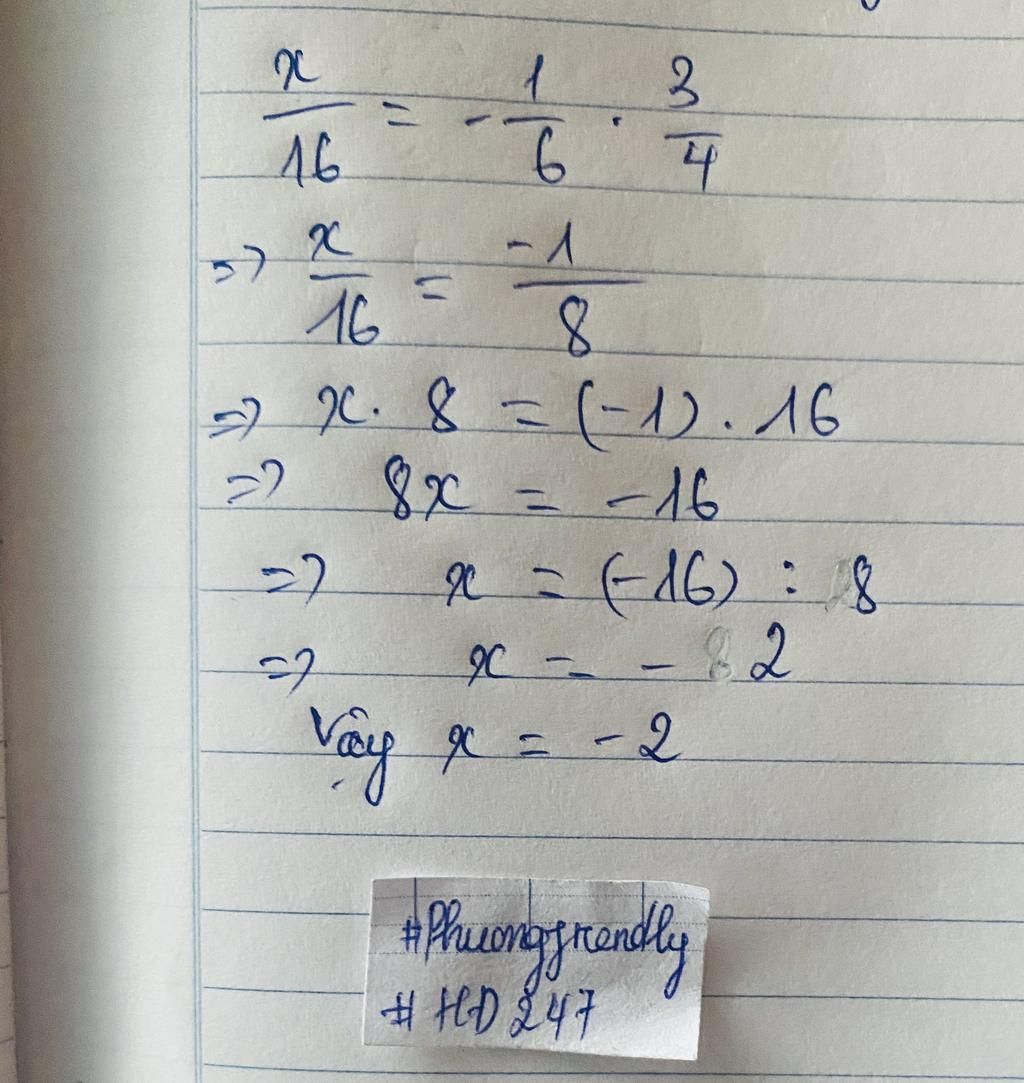 x/16 = -1/6 . 3/4
=> x/16 = -1/8
=> x. 8 = (-1) . 16
=> 8x = -16
=> x = (-16) : 8
=> x = - 2
Vậy x = -2
#Phuongfrendly
# HD 247